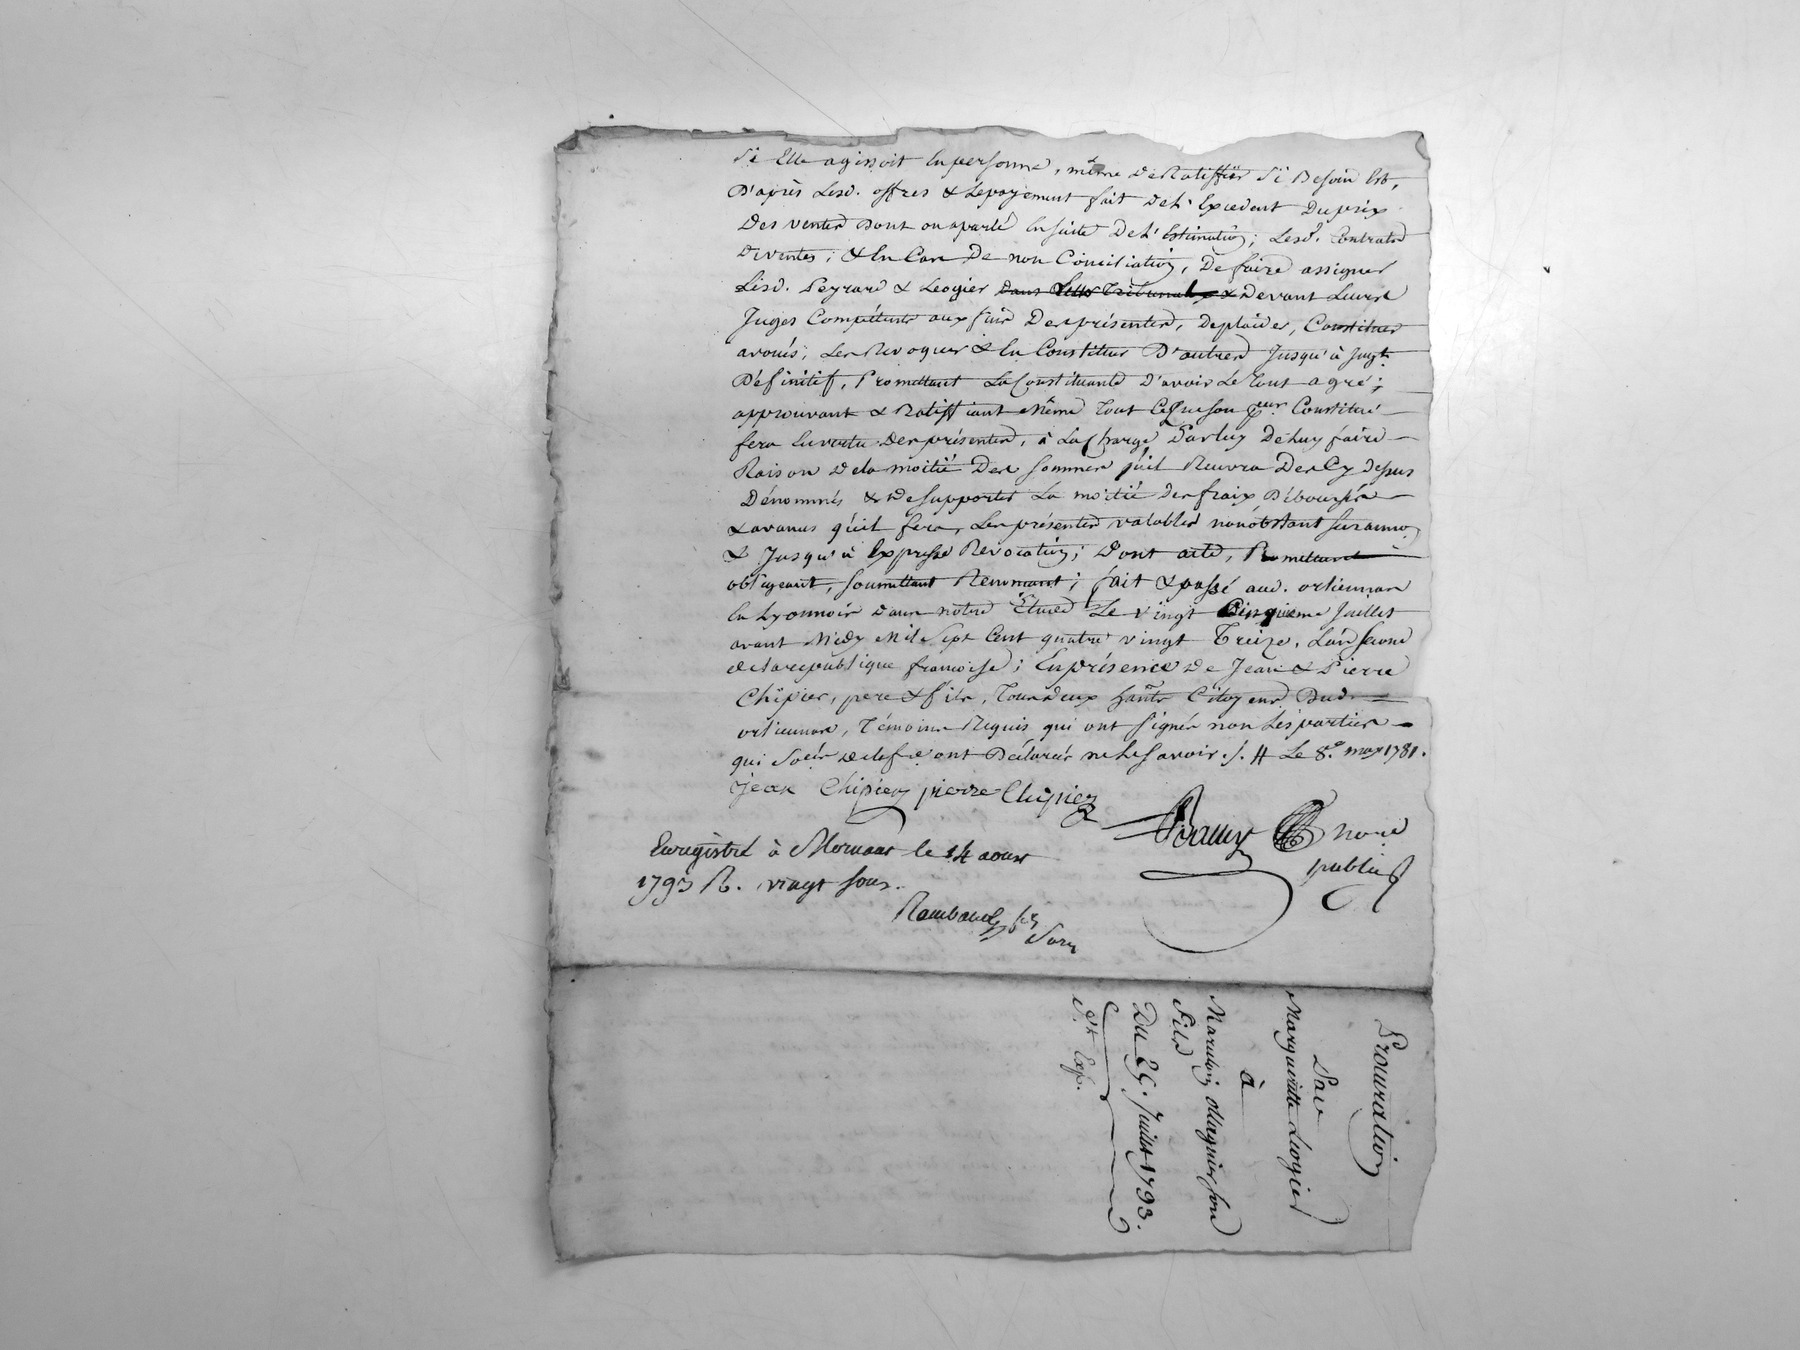 Si Elle agissoit En personne, même de Ratiffier Si Besoin Est,
D'après Lesd. offres & Lepayement fait De L'Excedent Du prix
Des ventes Dont on a parlé En suite De L'Estimation; Lesd. Contrats
De ventes; & En Cas De non Conciliation, De faire assigner
Lesd. Peyrard & Leogier devant Leurs
Juges Compétents aux fins Des présentes, De plaider, Constituer
avoués, Les Revoquer & En Constituer D'autres Jusqu'à Jugt.
Définitif, Promettant La Constituante D'avoir Le Tout agré;
approuvant & Ratiffiant même Tout Ce Que son Constitué
fera En vertu Des présentes, à La Charge Par luy De luy faire
Raison De la moitié Des sommes qu'il Recevra Des Cy dessus
Dénommés & De supporter La moitié Des fraix Déboursés
& avances qu'il fera, Les présentes valables nonobstant surannon.
& Jusqu'à Expresse Revocation; Dont acte, Promettant
obligeant, soumettant Renonçant; fait & passé aud. orlienas
En Lyonnois dans notre Etude Le vingt Cinquieme Juillet
avant Midy Mil Sept Cent quatre vingt Treize, L'an second
de la republique françoise; En présence De Jean & Pierre
Chipier, pere & fils, Tous deux Citoyens Dud.
orlienas, Témoins Requis qui ont Signés non Les parties
qui de ce ont Déclarés ne Le savoir ./. Le 8.e may 1781.
Jean Chipier pierre Chipier
nore
public
Enregistré à Mornant le 14 aoust
1793 R. vingt sous.
Procuration
Par
Margueritte Leogier
à
Son
Fils
Du 25. Juillet 1793.
Exp.